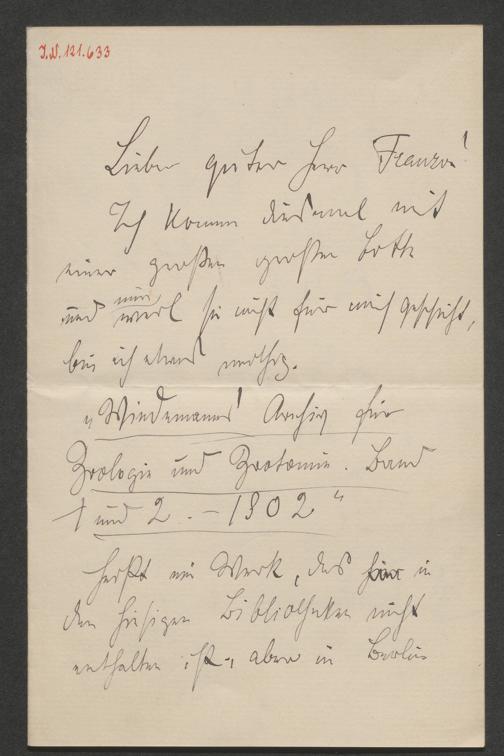 I.N. 121.633
Lieber guter Herr Franzos!
Ich komme diesmal mit
einer großen großen Bitte
und nur weil sie nicht für mich geschieht,
bin ich etwas muthig.
„Wiedemanns' Archiv für
Zoologie und Zootomie. Band
1 und 2. – 1802“
heißt ein Werk, das hier in
den hiesigen Bibliotheken nicht
enthalten ist, aber in Berlin